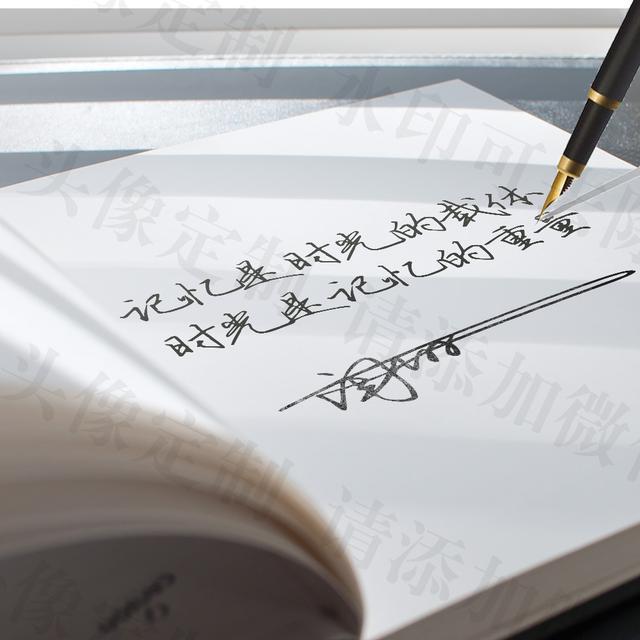 像定制 水印可
记忆是时光的载体
时光是记忆的重重
头像定制 请添加微
头像定制 请添加